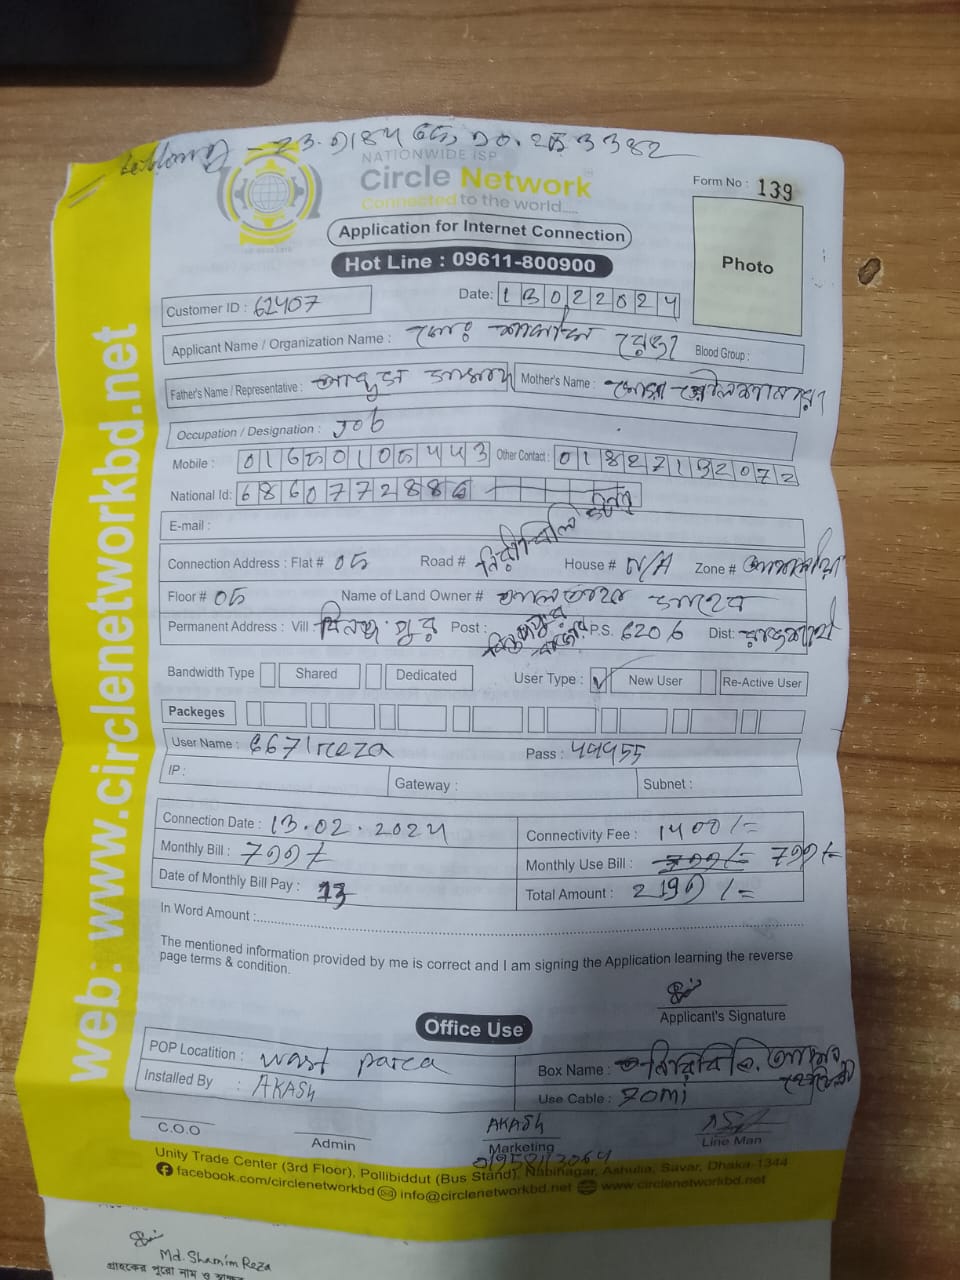 NATIONWIDE ISP
Circle Network
Connected to the world.....
Form No : 139
Application for Internet Connection
Hot Line : 09611-800900
Photo
Customer ID : 62407
Date: 13022024
Applicant Name / Organization Name : মোঃ শামীম রেজা
Blood Group :
Father's Name / Representative :
Mother's Name : মোসাঃ
Occupation / Designation : Job
Mobile : 01650105443 Other Contact : 01827192072
National Id: 6860772886
E-mail :
Connection Address : Flat # 05 Road # নিরীবিলি House # N/A Zone #
Floor # 05 Name of Land Owner #
Permanent Address : Vill Post : P.S. 6206 Dist: রাজশাহী
Bandwidth Type Shared Dedicated User Type : ✓ New User Re-Active User
Packeges
User Name : 6671reza Pass : 44955
IP : Gateway : Subnet :
Connection Date : 13.02.2024 Connectivity Fee : 1400/=
Monthly Bill : 799/= Monthly Use Bill : 799/=
Date of Monthly Bill Pay : 13 Total Amount : 2199/=
In Word Amount :
The mentioned information provided by me is correct and I am signing the Application learning the reverse
page terms & condition.
Applicant's Signature
Office Use
POP Locatition : wast parca Box Name :
Installed By : AKASH Use Cable : 70mi
C.O.O Admin AKASH Marketing Line Man
Unity Trade Center (3rd Floor), Pollibiddut (Bus Stand), Nabinagar, Ashulia, Savar, Dhaka-1344
facebook.com/circlenetworkbd info@circlenetworkbd.net www.circlenetworkbd.net
web: www.circlenetworkbd.net
Md. Shamim Reza
গ্রাহকের পুরো নাম ও